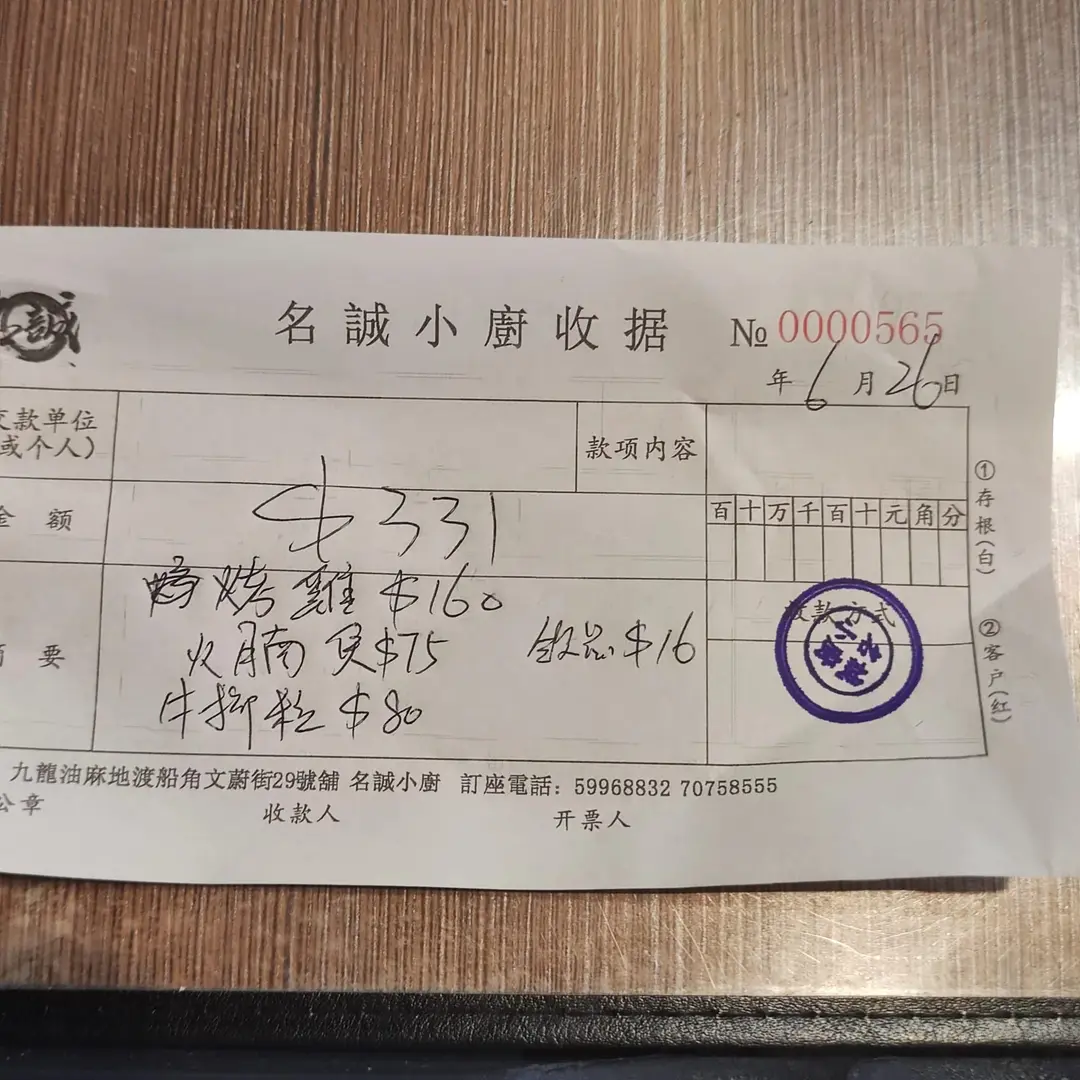 誠
名誠小廚收据
№ 0000565
年 6 月 26 日
交款单位
(或个人)
款项内容
金 额
$331
百十万千百十元角分
烤雞 $160
火腩煲 $75
$16
牛柳粒 $80
摘 要
收款方式
①存根(白)
②客户(红)
九龍油麻地渡船角文蔚街29號舖 名誠小廚 訂座電話：59968832 70758555
公章
收款人
开票人